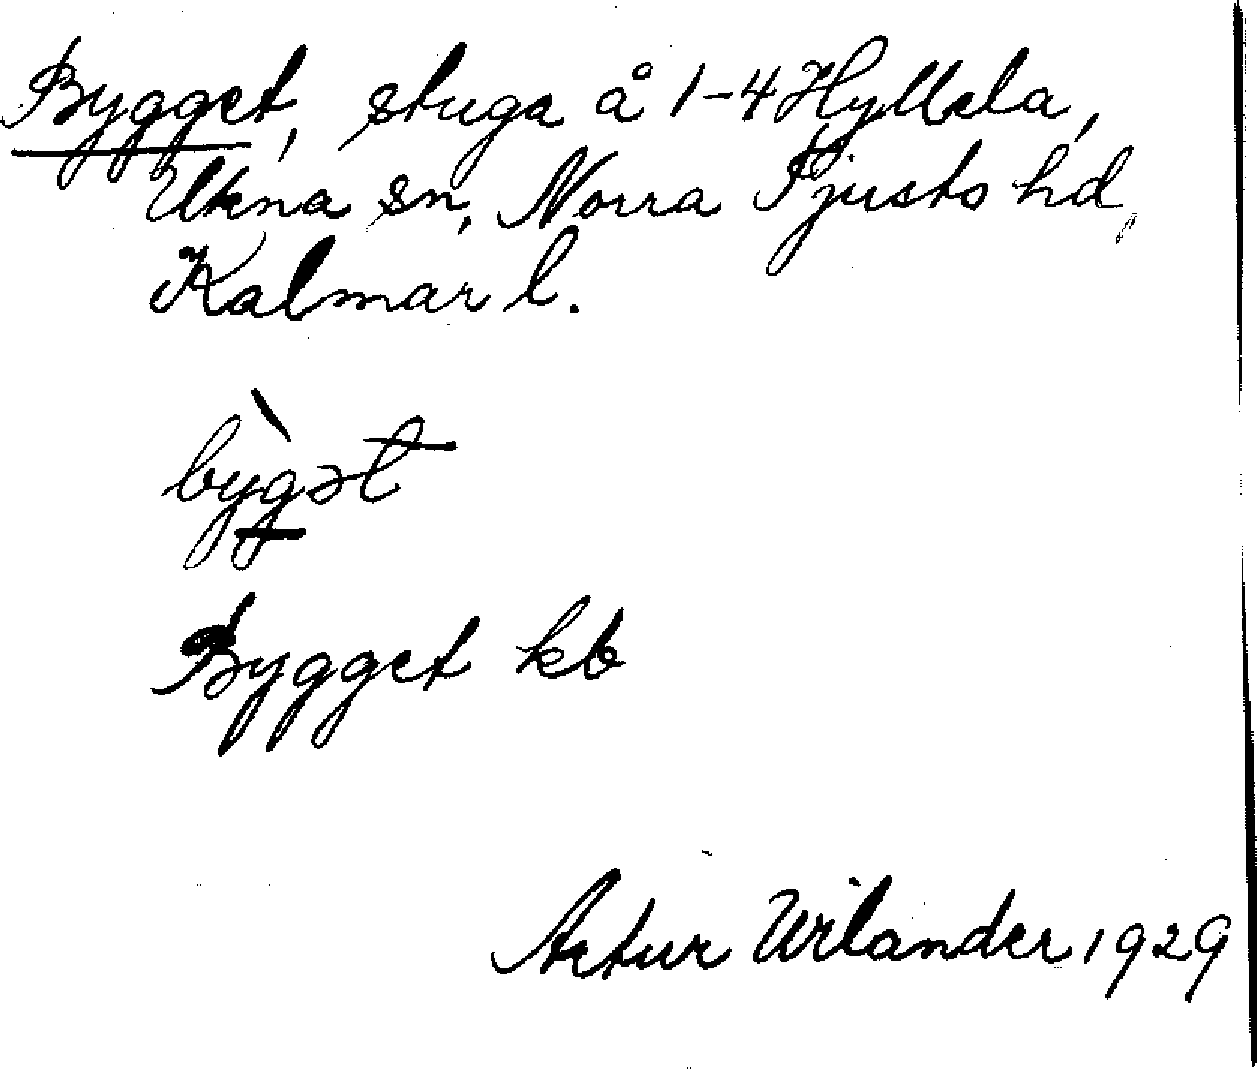 Bygget, stuga å 1-4 Hyllela,
Ukna sn, Norra Tjusts hd,
Kalmar l.
bỳgət
Bygget kb
Artur Wilander 1929